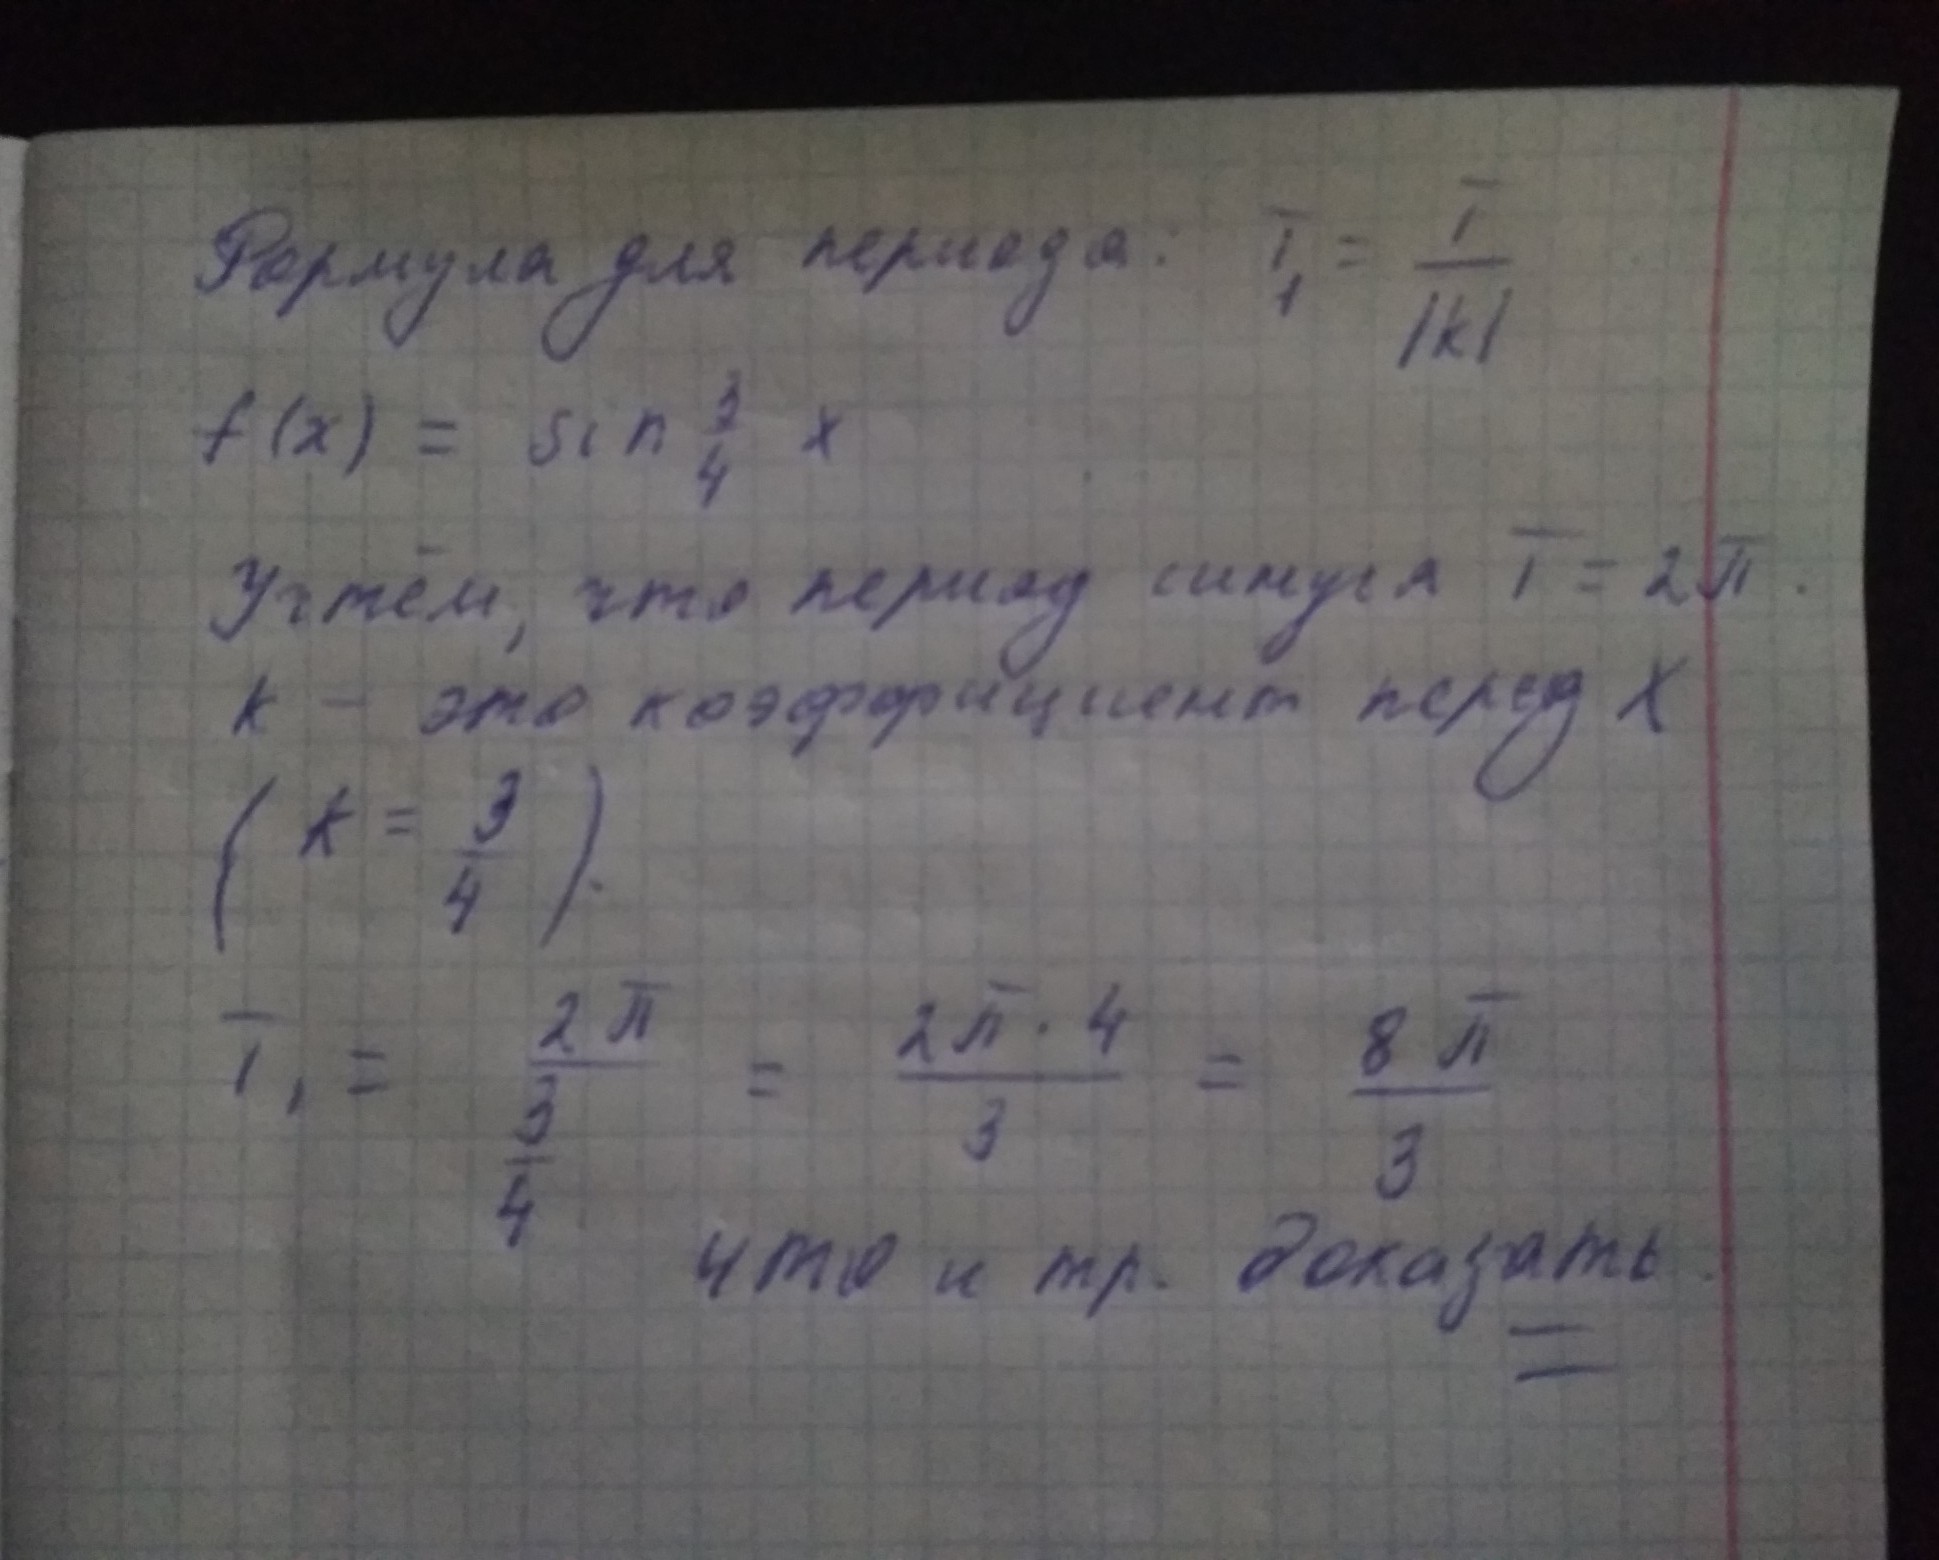 Формула для периода: T₁ = T/|k|
f(x) = sin 3/4 x
Учтём, что период синуса T = 2π.
k – это коэффициент перед x
(k = 3/4).
T₁ = 2π/(3/4) = 2π·4/3 = 8π/3
что и тр. доказать.